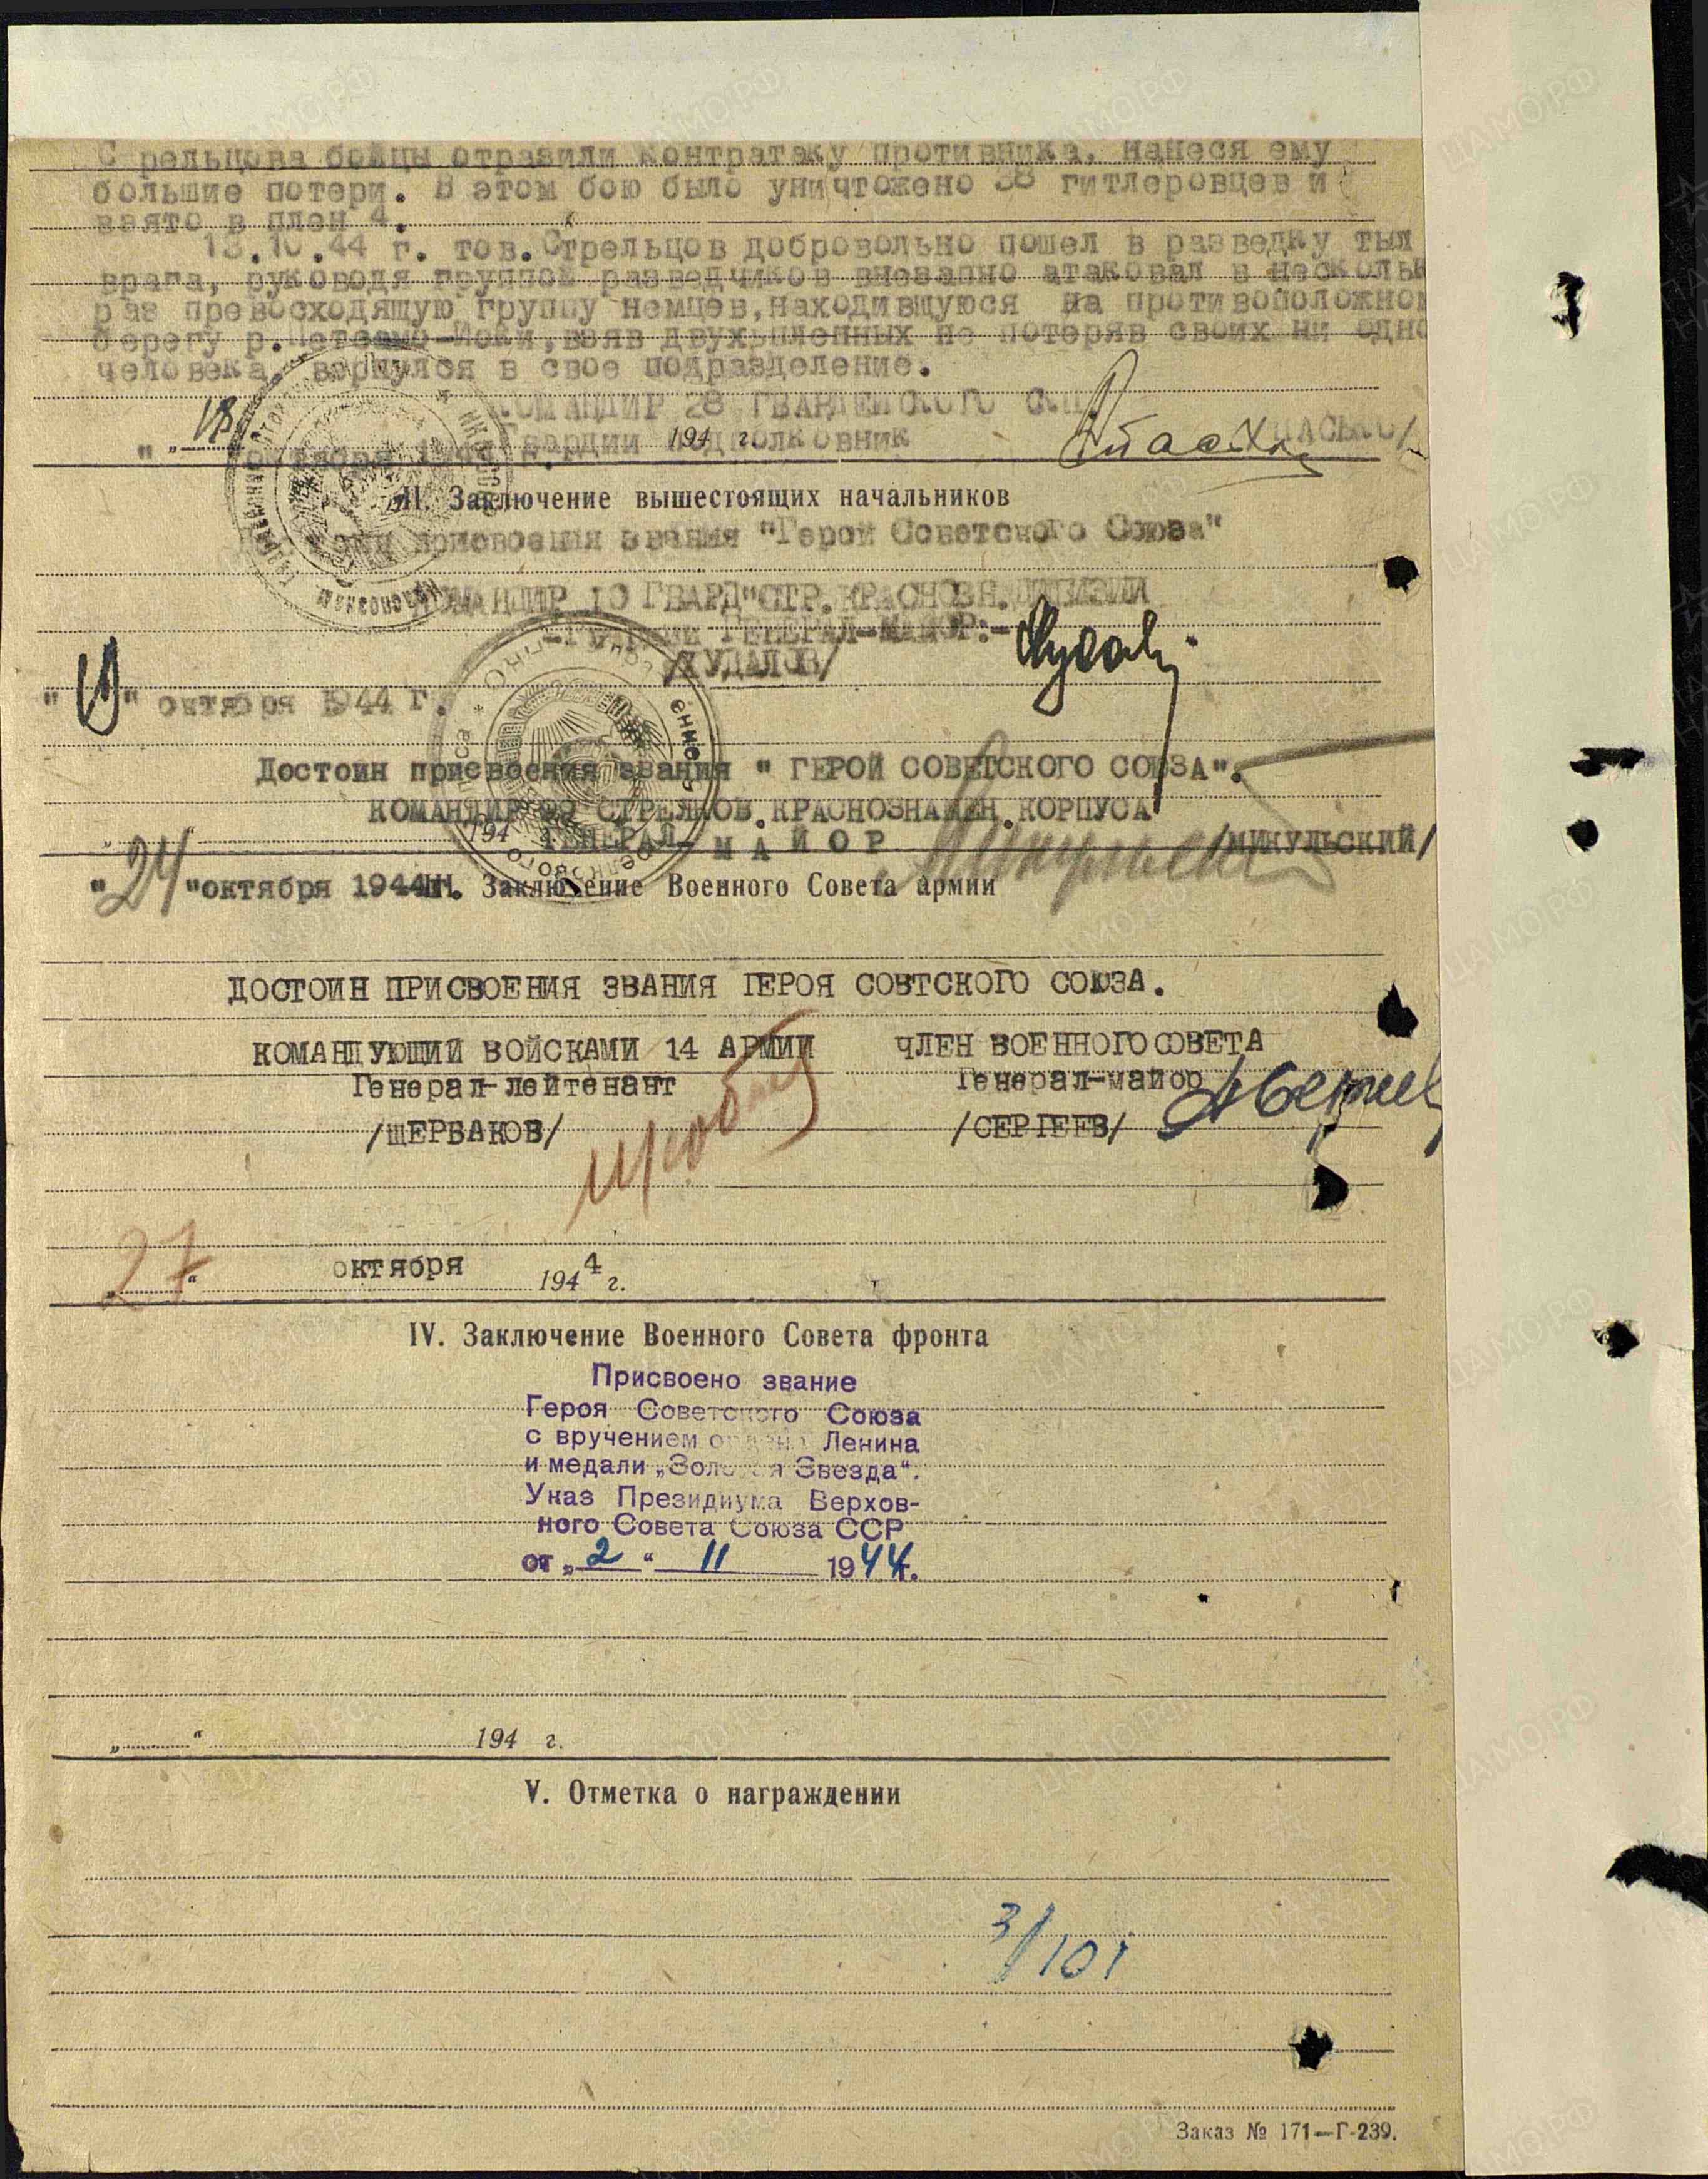 Стрельцова бойцы отразили контратаку противника, нанеся ему
большие потери. В этом бою было уничтожено 38 гитлеровцев и
взято в плен 4.
13.10.44 г. тов.Стрельцов добровольно пошел в разведку тыл
врага, руководя группой разведчиков внезапно атаковал в несколь
раз превосходящую группу немцев,находившуюся на противоположном
берегу р. Петсамо-Йоки,взяв двух пленных не потеряв своих ни одно
человека, вернулся в свое подразделение.
КОМАНДИР 28 ГВАРДЕЙСКОГО С.П.
Гвардии подполковник /ПАСЬКО/
194 г.
II. Заключение вышестоящих начальников
присвоения звания "Герой Советского Союза"
КОМАНДИР 10 ГВАРД"СТР.КРАСНОЗН.ДИВИЗИИ
-Гвардии ГЕНЕРАЛ-МАЙОР:-
/ХУДАЛОВ/
" " октября 1944 г.
Достоин присвоения звания " ГЕРОЙ СОВЕТСКОГО СОЮЗА".
КОМАНДИР 99 СТРЕЛКОВ.КРАСНОЗНАМЕН.КОРПУСА
194 ГЕНЕРАЛ- М А Й О Р /МИКУЛЬСКИЙ/
"24"октября 1944 г. III. Заключение Военного Совета армии
ДОСТОИН ПРИСВОЕНИЯ ЗВАНИЯ ГЕРОЯ СОВТСКОГО СОЮЗА.
КОМАНДУЮЩИЙ ВОЙСКАМИ 14 АРМИИ ЧЛЕН ВОЕННОГО СОВЕТА
Генерал-лейтенант Генерал-майор
/ЩЕРБАКОВ/ /СЕРГЕЕВ/
„27“ октября 1944 г.
IV. Заключение Военного Совета фронта
Присвоено звание
Героя Советского Союза
с вручением ордена Ленина
и медали „Золотая Звезда“.
Указ Президиума Верхов-
ного Совета Союза ССР
от „2“ 11 1944г.
„ “ 194 г.
V. Отметка о награждении
3/101
Заказ № 171—Г-239.